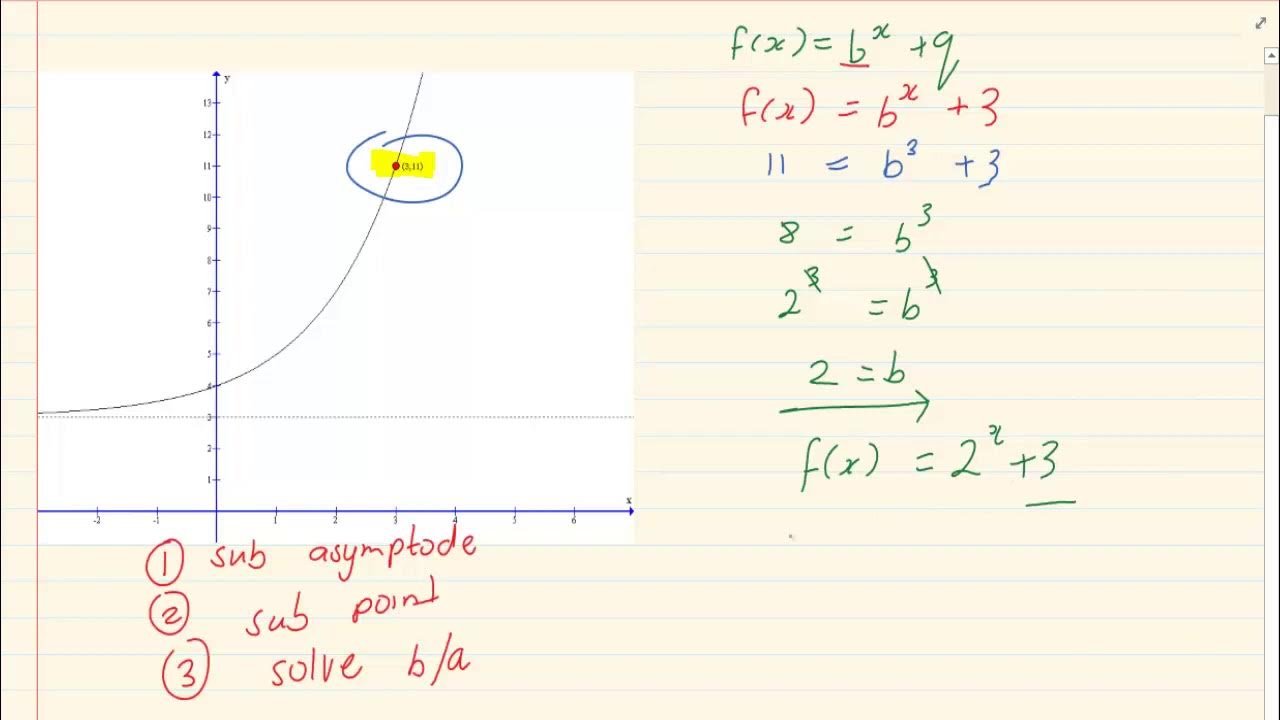 f(x) = b^x + q
f(x) = b^x + 3
11 = b^3 + 3
8 = b^3
2^3 = b^3
2 = b
f(x) = 2^x + 3
y
13
12
11
(3,11)
10
9
8
7
6
5
4
3
2
1
x
-2 -1 1 2 3 4 5 6
① sub asymptode
② sub point
③ solve b/a